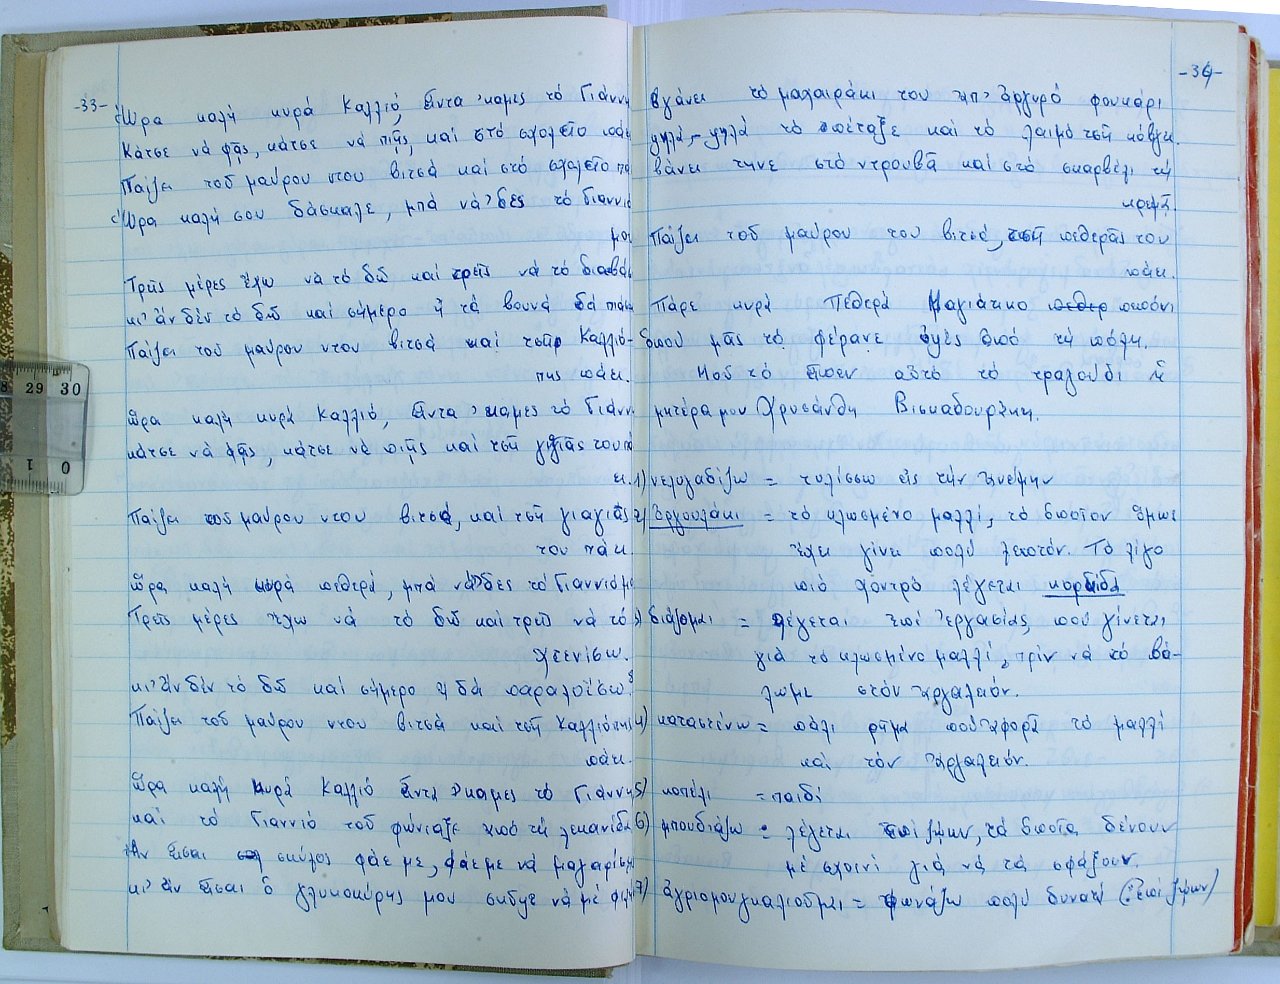 -33-
Ὥρα καλή κυρά Καλλιό, εἶντα 'καμες τό Γιάννη
Κάτσε νά φᾶς, κάτσε νά πιῇς, καί στό σχολεῖο πάει
Παίζει τοῦ μαύρου ντου βιτσά καί στό σχολεῖο πά
Ὥρα καλή σου δάσκαλε, μπά νά 'δες τό Γιαννιό
μου
Τρεῖς μέρες ἔχω νά τό δῶ καί τρεῖς νά τό διαβά
κι' ἄν δέν τό δῶ καί σήμερο τά βουνά θά πιά
Παίζει τοῦ μαύρου ντου βιτσά καί τσῆ Καλλιό-
πης πάει.
Ὥρα καλή κυρά Καλλιό, εἶντα 'καμες τό Γιάνν
κάτσε νά φᾶς, κάτσε νά πιῇς καί τσῆ γιαγιᾶς του πά
ει.
Παίζει τοῦ μαύρου ντου βιτσά, καί τσῆ γιαγιᾶς
του πάει.
Ὥρα καλή κυρά πεθερά, μπά νά 'δες τό Γιαννιό μο
Τρεῖς μέρες ἔχω νά τό δῶ καί τρεῖς νά τό
χτενίσω.
κι' ἄν δέν τό δῶ καί σήμερο θά παραλοΐσω.
Παίζει τοῦ μαύρου ντου βιτσά καί τσῆ Καλλιόπης
πάει.
Ὥρα καλή κυρά Καλλιό εἶντα 'καμες τό Γιάννη
καί τό Γιαννιό τοῦ φώνιαξε ἀπό τή λεκανίδα
Ἄν εἶσαι σκύλος φάε με, φάε με νά μαγαρίσῃς
κι' ἄν εἶσαι ὁ γλυκοκύρης μου σκύψε νά μέ φιλή
-34-
Βγάνει τό μαχαιράκι του ἀπ' ἀργυρό φουκάρι
ψηλά-ψηλά τό πέταξε καί τό λαιμό τσῆ κόβγει.
βάνει τηνε στό ντρουβᾶ καί στό σκαρβέλι τή
κρεμᾷ.
Παίζει τοῦ μαύρου του βιτσά, τσῆ πεθερᾶς του
πάει.
Πάρε κυρά Πεθερά Μαγιάτικο κοπόνι
ὁπού μᾶς τό φέρανε ἐψές ἀπό τή πόλη.
Μοῦ τό εἶπεν αὐτό τό τραγούδι ἡ
μητέρα μου Χρυσάνθη Βισκαδουράκη.
1) νεμογαδίζω = τυλίσσω εἰς τήν ἀνέμην
2) Ἐργουλάκι = τό κλωσμένο μαλλί, τό ὁποῖον ὅμως
ἔχει γίνει πολύ λεπτόν. Τό λίγο
πιό χοντρό λέγεται κορδίδα
3) διάζομαι = λέγεται ἐπί ἐργασίας πού γίνεται
γιά τό κλωσμένο μαλλί, πρίν νά τό βά-
λωμε στόν ἀργαλειόν.
4) καταστένω = πάλι ρῆμα πού ἀφορᾷ τό μαλλί
καί τόν ἀργαλειόν.
5) κοπέλι = παιδί
6) μπουδιάζω = λέγεται ἐπί ζώων, τά ὁποῖα δένουν
μέ σχοινί γιά νά τά σφάξουν.
7) ἀγριομουγκαλιοῦμαι = φωνάζω πολύ δυνατά (: ἐπί ζώων)